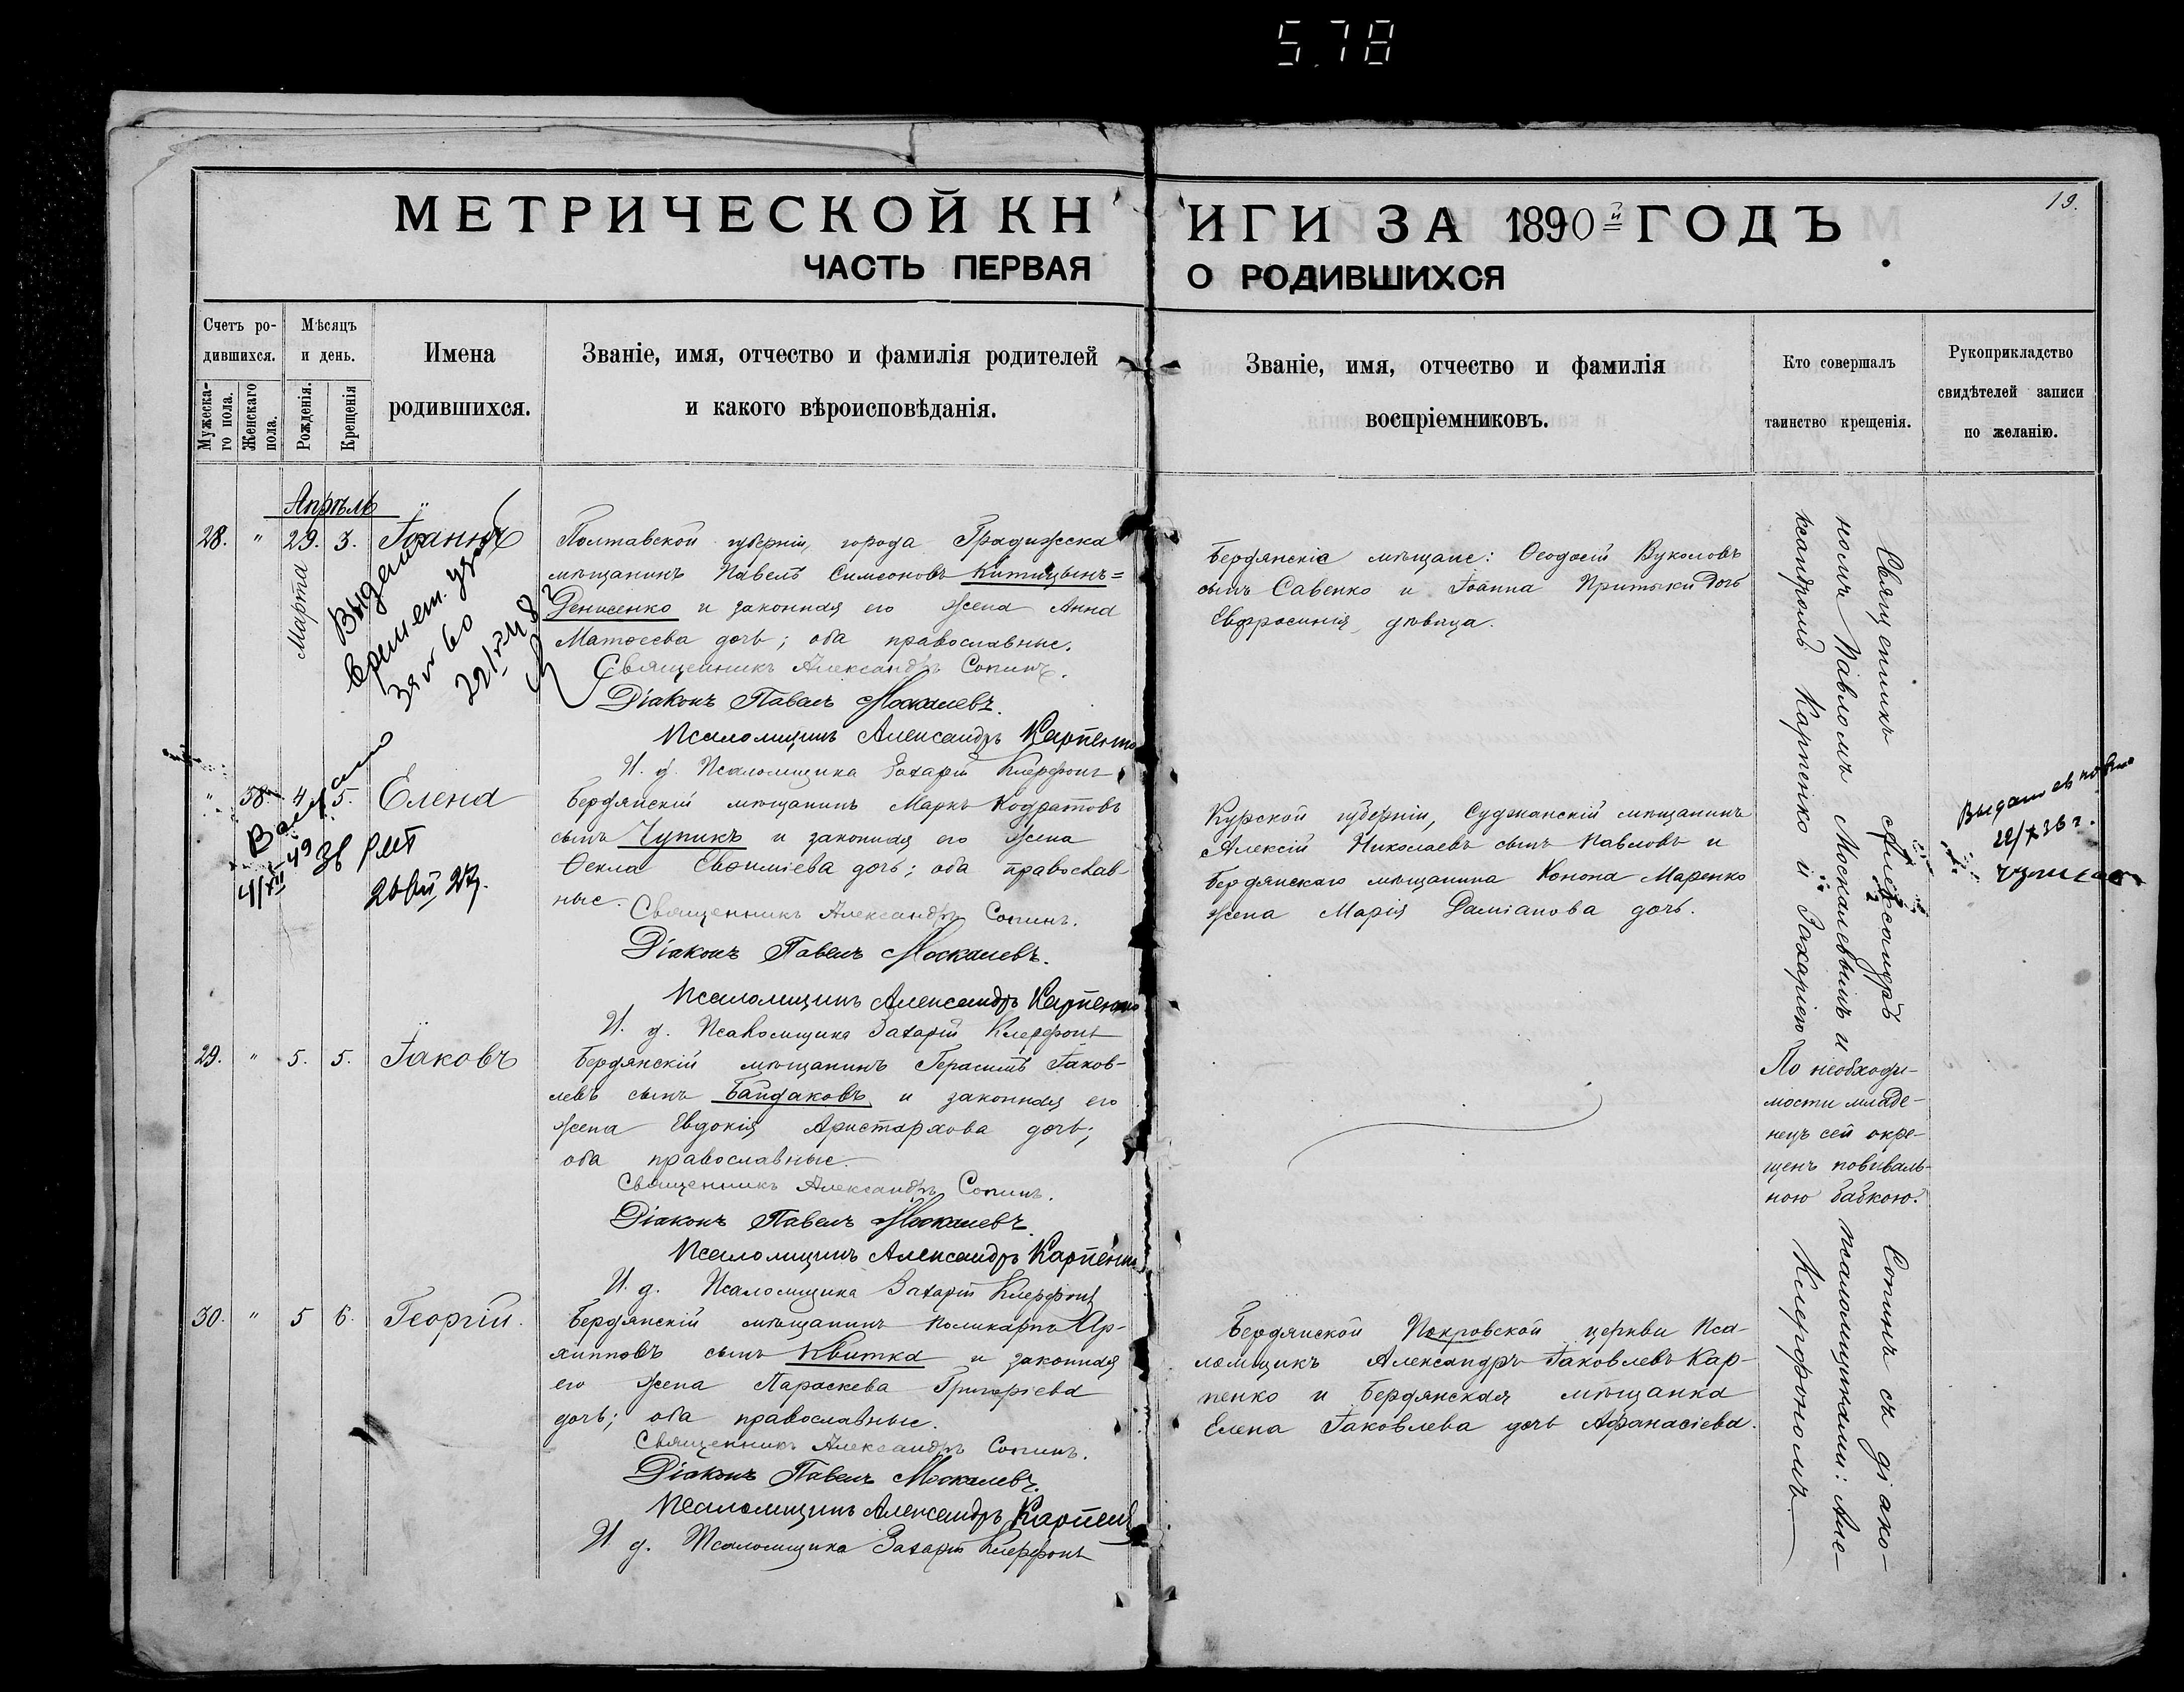 5.78
19.
МЕТРИЧЕСКОЙ КН
ИГИ ЗА 1890й ГОДЪ
ЧАСТЬ ПЕРВАЯ
О РОДИВШИХСЯ
Счетъ ро-
дившихся.
Мужеска-
го пола.
Женскаго
пола.
Мѣсяцъ
и день.
Рожденія.
Крещенія
Имена
родившихся.
Званіе, имя, отчество и фамилія родителей
и какого вѣроисповѣданія.
Званіе, имя, отчество и фамилія
воспріемниковъ.
Кто совершалъ
таинство крещенія.
Рукоприкладство
свидѣтелей записи
по желанію.
Апрѣль
28. " 29. 3. Іоаннъ
Марта
Полтавской губерніи, города Градижска
мѣщанинъ Павелъ Симеоновъ Китицынъ=
Денисенко и законная его жена Анна
Матѳеева дочь; оба православные.
Священникъ Александръ Сопинъ.
Діаконъ Павелъ Москалевъ.
Псаломщикъ Александръ Карпенко
И. д. Псаломщика Захарій Клерфонъ
Бердянскіе мѣщане: Ѳеодосій Вуколовъ
сынъ Савенко и Іоанна Притыки дочь
Евфросинія, дѣвица.
" 38. 4. 5. Елена
Бердянскій мѣщанинъ Маркъ Кодратовъ
сынъ Чупикъ и законная его жена
Ѳекла Евѳиміева дочь; оба православ-
ные.
Священникъ Александръ Сопинъ.
Діаконъ Павелъ Москалевъ.
Псаломщикъ Александръ Карпенко
И. д. Псаломщика Захарій Клерфонъ
Курской губерніи, Суджанскій мѣщанинъ
Алексій Николаевъ сынъ Павловъ и
Бердянскаго мѣщанина Конона Маренко
жена Марія Даміанова дочь.
29. " 5. 5. Іаковъ
Бердянскій мѣщанинъ Герасимъ Іаков-
левъ сынъ Байдаковъ и законная его
жена Евдокія Аристархова дочь;
оба православные.
Священникъ Александръ Сопинъ.
Діаконъ Павелъ Москалевъ
Псаломщикъ Александръ Карпенко
И. д. Псаломщика Захарій Клерфонъ
По необходи-
мости младе-
нецъ сей окре-
щенъ повиваль-
ною бабкою.
30. " 5 6. Георгій.
Бердянскій мѣщанинъ Поликарпъ Ар-
хипповъ сынъ Квитка и законная
его жена Параскева Григоріева
дочь; оба православные.
Священникъ Александръ Сопинъ.
Діаконъ Павелъ Москалевъ.
Псаломщикъ Александръ Карпенк
И. д. Псаломщика Захарій Клерфонъ
Бердянской Покровской церкви Пса-
ломщикъ Александръ Іаковлевъ Кар-
пенко и Бердянская мѣщанка
Елена Іаковлева дочь Афанасіева.
Священникъ Александръ Сопинъ съ діако-
номъ Павломъ Москалевымъ и псаломщиками: Але-
ксандромъ Карпенко и Захаріею Клерфономъ